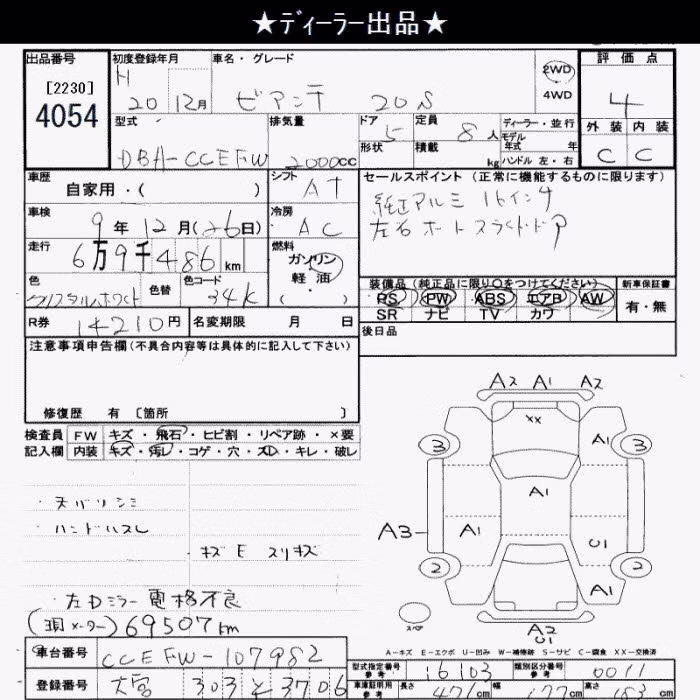 ★ディーラー出品★
出品番号
[2230]
4054
初度登録年月
H 20 12月
車名・グレード
ビアンテ 20S
2WD
4WD
評価点
4
外装 内装
C C
型式
DBA-CCEFW
排気量
2000cc
ドア
5
形状
定員
8人
積載
kg
ディーラー・並行
モデル
年式 年
ハンドル 左・右
車歴
自家用・( )
シフト
AT
車検
9年12月(26日)
冷房
AC
走行
6万9千486km
燃料
ガソリン
軽油
( ・ )
色
クリスタルホワイト
色替
色コード
34K
R券
14210円
名変期限 月 日
セールスポイント (正常に機能するものに限ります)
純正アルミ 16インチ
左右オートスライドドア
装備品 (純正品に限り○をつけてください)
PS PW ABS エアB AW
SR ナビ TV カワ
新車保証書
有・無
後日品
注意事項申告欄(不具合内容等は具体的に記入して下さい)
修復歴 有 〔箇所 〕
検査員
記入欄
FW キズ・飛石・ヒビ割・リペア跡・×要
内装 キズ・汚レ・コゲ・穴・スレ・キレ・破レ
・天バリシミ
・ハンドルスレ
・キズ E スリキズ
・左Dミラー電格不良
(現メーター)69507km
A2 A1 A2
XX
3
A1
3
A1
A3
A1
U1
2
2
A1
スペア
A2
U1
A-キズ E-エクボ U-凹み W-補修跡 S-サビ C-腐食 XX-交換済
車台番号
CCEFW-107982
登録番号
大宮 303 そ 3706
型式指定番号
参考
16103
類別区分番号
参考
0011
車庫証明用
参考
長さ
471cm
幅
177cm
高さ
cm